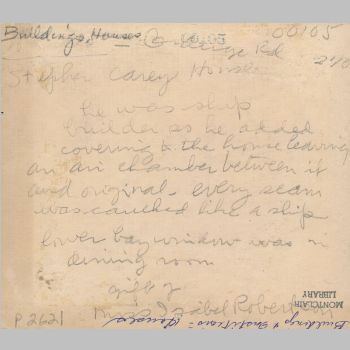 Buildings, Houses
Orange Rd
00105
Stephen Carey House
he was ship
builder so he added
covering to the house leaving
an air chamber between it
and original - every seam
was caulked like a ship
lower bay window was in
dining room
gift of
Isabel Robertson
P 2621
MONTCLAIR
LIBRARY
Buildings & Institutions: Houses